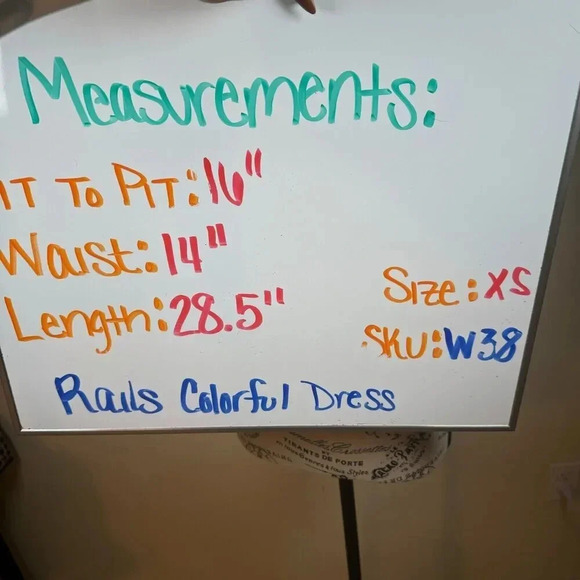 Measurements:
IT TO PIT: 16"
Waist: 14"
Length: 28.5"
Size: XS
SKU: W38
Rails Colorful Dress
TIRANTS DE PORTE